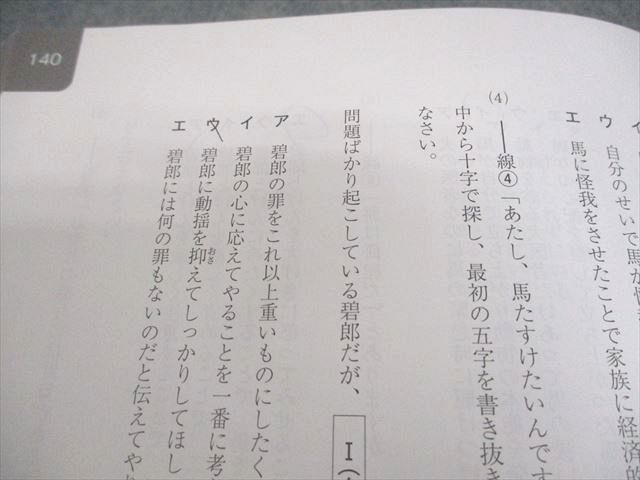 140
ウ 自分のせいで馬が
エ 馬に怪我をさせたことで家族に経済的
(4) ――線④「あたし、馬たすけたいんです
中から十字で探し、最初の五字を書き抜き
なさい。
問題ばかり起こしている碧郎だが、 I
ア 碧郎の罪をこれ以上重いものにしたく
イ 碧郎の心に応えてやることを一番に考
ウ 碧郎に動揺を抑えてしっかりしてほし
おさ
エ 碧郎には何の罪もないのだと伝えてや